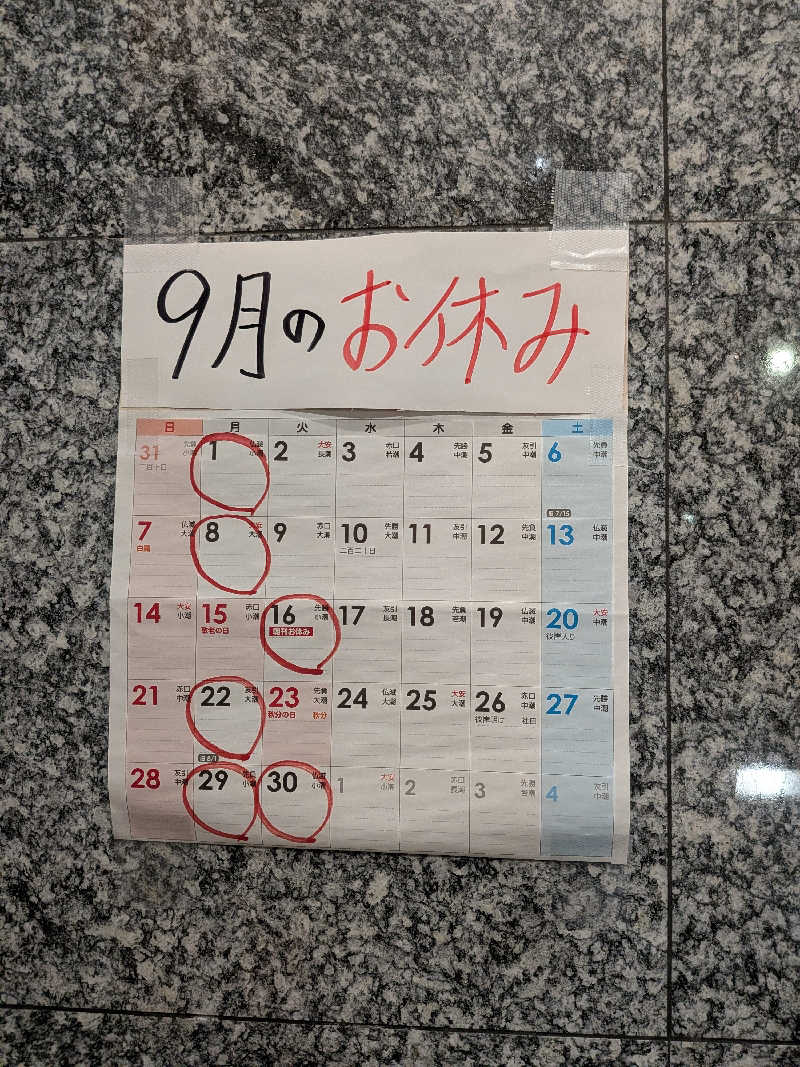 9月のお休み
日 月 火 水 木 金 土
31 先負 小潮 1 仏滅 小潮 2 大安 長潮 3 赤口 若潮 4 先勝 中潮 5 友引 中潮 6 先負 中潮
二百十日
旧7/15
7 仏滅 大潮 8 大安 大潮 9 赤口 大潮 10 先勝 大潮 11 友引 中潮 12 先負 中潮 13 仏滅 中潮
白露 二百二十日
14 大安 小潮 15 赤口 小潮 16 先勝 小潮 17 友引 長潮 18 先負 若潮 19 仏滅 中潮 20 大安 中潮
敬老の日 朝刊お休み 彼岸入り
21 赤口 中潮 22 友引 大潮 23 先負 大潮 24 仏滅 大潮 25 大安 大潮 26 赤口 中潮 27 先勝 中潮
秋分の日 秋分 彼岸明け 社日
旧8/1
28 友引 中潮 29 先負 小潮 30 仏滅 小潮 1 大安 小潮 2 赤口 長潮 3 先勝 若潮 4 友引 中潮